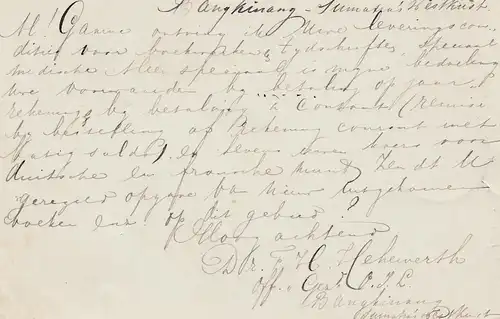 Bangkinang - Sumatra's Westkust
M! Gaarne ontving ik Uwe leveringscon-
ditiën voor boekwerken & tydschriften, speciaal
medische. Meer speciaal is mijne bedoeling
Uwe voorwaarden by betaling op jaar-
rekening, by betaling à Contant (remise
by bestelling of Rekening courant met
batig saldo), en tevens Uwen koers voor
duitsche en fransche munt. Zendt U
geregeld opgave van nieuw uitgekomen
boeken enz. op dit gebied?
Hoog achtend
Dr. F. H. Hehewerth
Off. v. Gez. O.I.L.
Bangkinang
Sumatra's Westkust